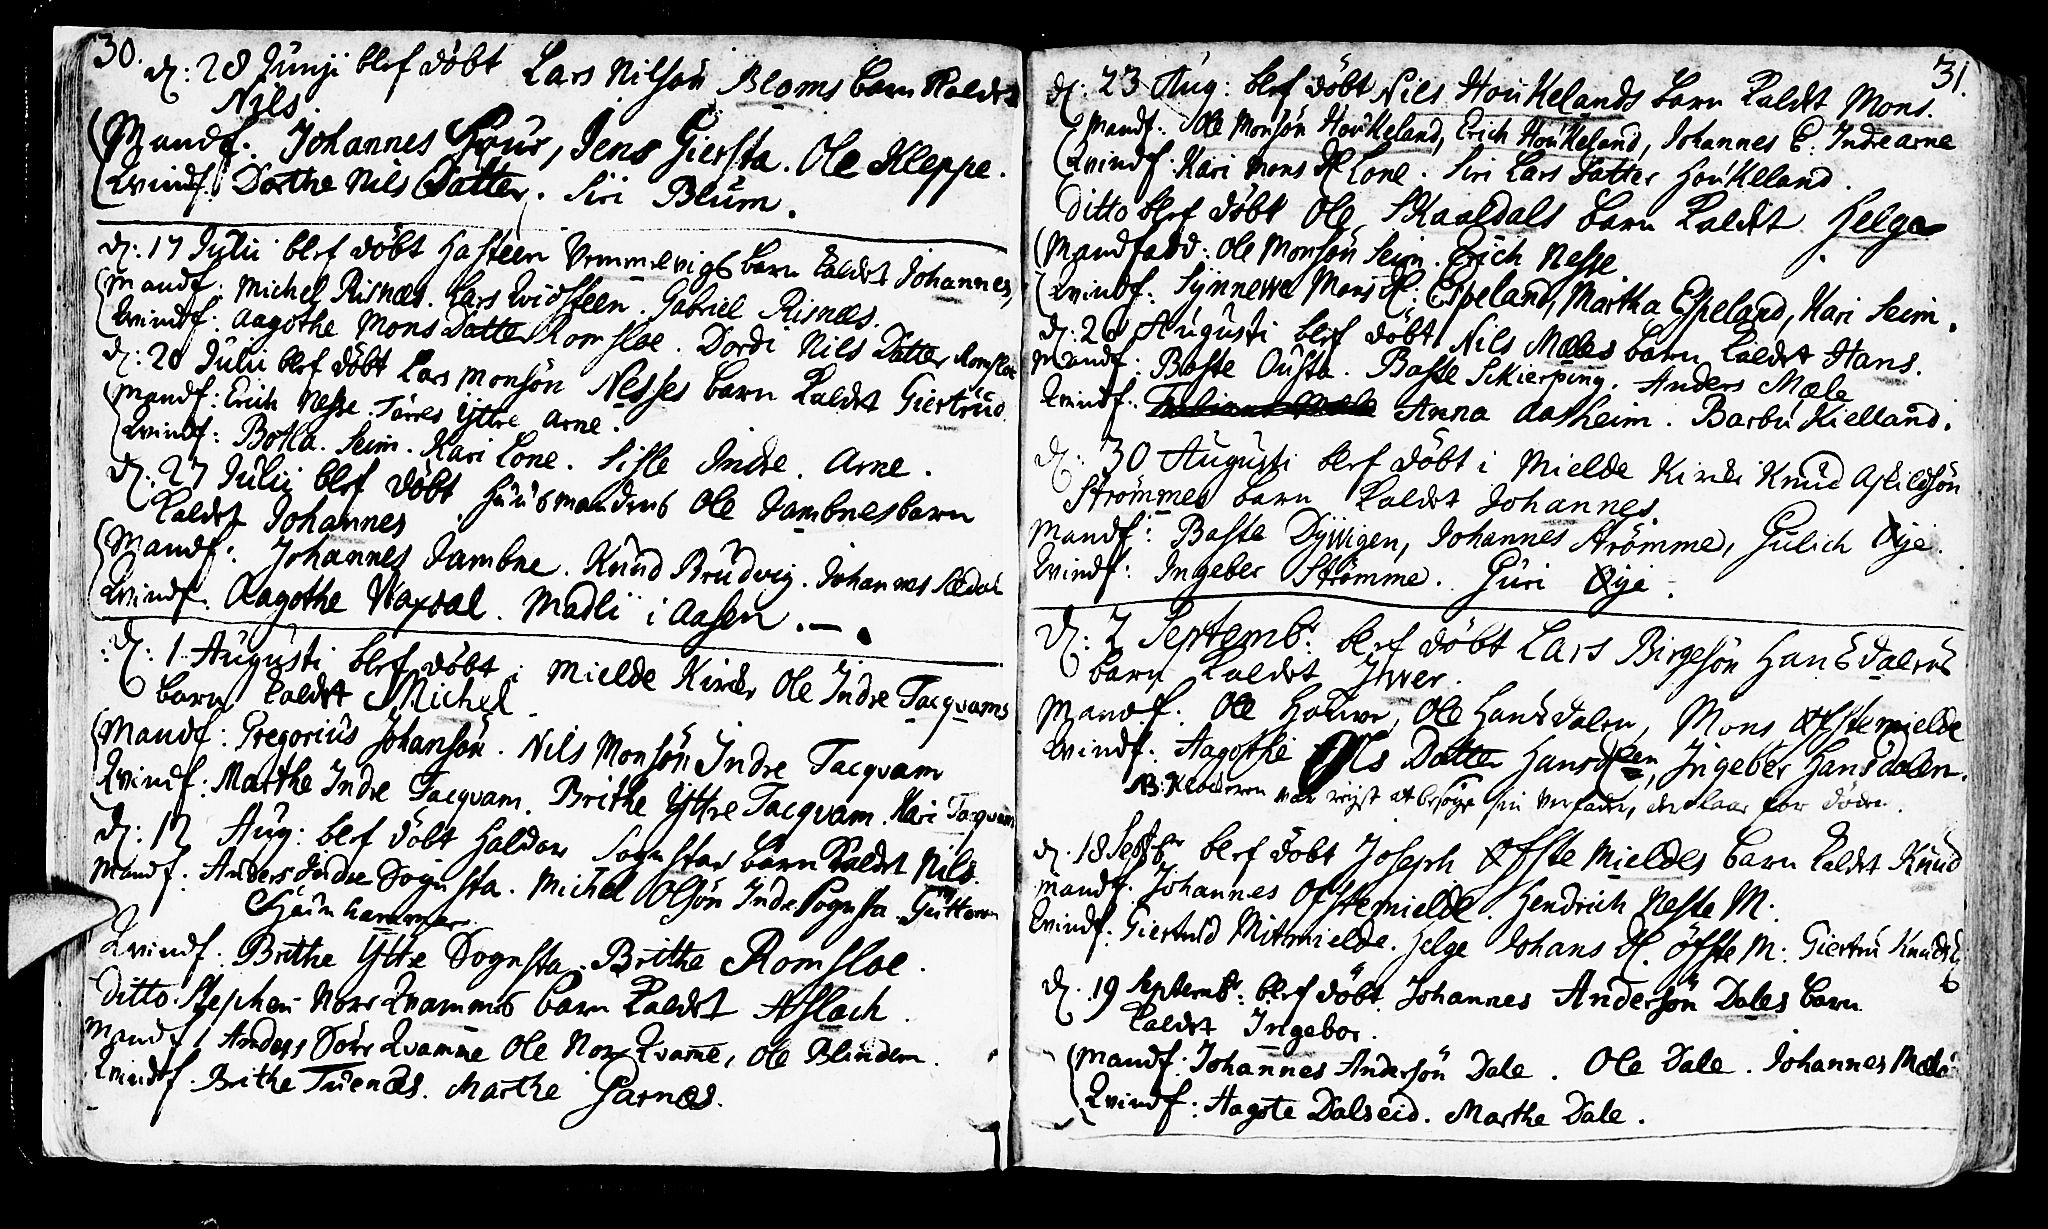 30.
d: 28 Junji blef döbt Lars Nilsön Bloms barn kaldet
Nils.
Mandf: Johannes Jens Giersta. Ole Kleppe.
Qvindf: Dorthe Nils Datter. Siri Blum.
d: 17 Julii blef döbt Hasteen Vemmelvigs barn kaldet Johannes,
Mandf: Michel Risnæs. Lars Qvidsteen. Gabriel Risnæs.
Qvindf: Aagothe Mons Datter Romsloe. Dordi Nils Datter Romsloe
d: 20 Julii blef döbt Lars Monsön Nesses barn kaldet Giertrud.
Mandf: Erich Nesse. Torres Yttre Arne.
Qvindf: Botla Seim. Kari Lone. Sisle Indre Arne.
d: 27 Julii blef döbt Huusmandens Ole Jambnes barn
kaldet Johannes
Mandf: Johannes Jambne. Knud Brudvig. Johannes Sædal
Qvindf: Aagothe Waxdal. Madli i Aasen.
d: 1 Augusti blef döbt i Mielde Kirke Ole Indre Tacqvams
barn kaldet Michel
Mandf: Gregorius Johansön. Nils Monsön Indre Tacqvam
Qvindf: Marthe Indre Tacqvam. Brithe Yttre Tacqvam. Kari Tacqvam
d: 12 Aug: blef döbt Haldor Sognstas barn kaldet Nils.
Mandf: Anders Indre Sognsta. Michel Olsön Indre Sognsta. Guttorm
Houn hammer.
Qvindf: Brithe Yttre Sognsta. Brithe Romsloe.
Ditto Stephen Nore Qvammes barn kaldet Aslach.
Mandf: Anders Söre Qvamme Ole Nore Qvamme, Ole Blindem.
Qvindf: Brithe Tuenæs. Marthe Garnæs.
31.
d: 23 Aug: blef döbt Nils Houkelands barn kaldet Mons.
Mandf: Ole Monsön Houkeland, Erich Houkeland, Johannes E: Indre Arne
Qvindf: Kari Mons D Lone. Siri Lars Datter Houkeland.
Ditto blef döbt Ole Skaaldals barn kaldet Helga
Mandfadd: Ole Monsön Seim. Erich Nesse
Qvindf: Synnewe Mons D: Espeland, Martha Espeland, Kari Seim.
d: 26 Augusti blef döbt Nils Mæles barn kaldet Hans.
Mandf: Baste Ousta. Baste Skierping. Anders Mæle
Qvindf: Anna Aasheim. Barbu Kielland.
d: 30 Augusti blef döbt i Mielde Kirke Knud Askildsön
Strömmes barn kaldet Johannes.
Mandf: Baste Dyvigen, Johannes Strömme, Gulich Øye.
Qvindf: Ingeber Strömme. Guri Øye.
d: 2 Septembr: blef döbt Lars Birgesön Hansdalens
barn kaldet Iver.
Mandf: Ole Ole Hansdalen, Mons Øfstemielde
Qvindf: Aagothe Ols Datter Hansdalen, Ingeber Hansdalen.
NB: Moderen var reist at besöge sin Verfader, der laae for döden.
d. 18 Septbr blef döbt Joseph Øfste Mieldes barn kaldet Knud
Mandf. Johannes Ofstemielde. Hendrich Neste M.
Qvindf: Giertrud Mitmielde. Helge Johans D. Öfste M: Giertru Knuds D
d. 19 Septembr: blef döbt Johannes Andersön Dales barn
kaldet Ingebor.
Mandf: Johannes Andersön Dale. Ole Dale. Johannes Mæle
Qvindf: Aagote Dalseid. Marthe Dale.